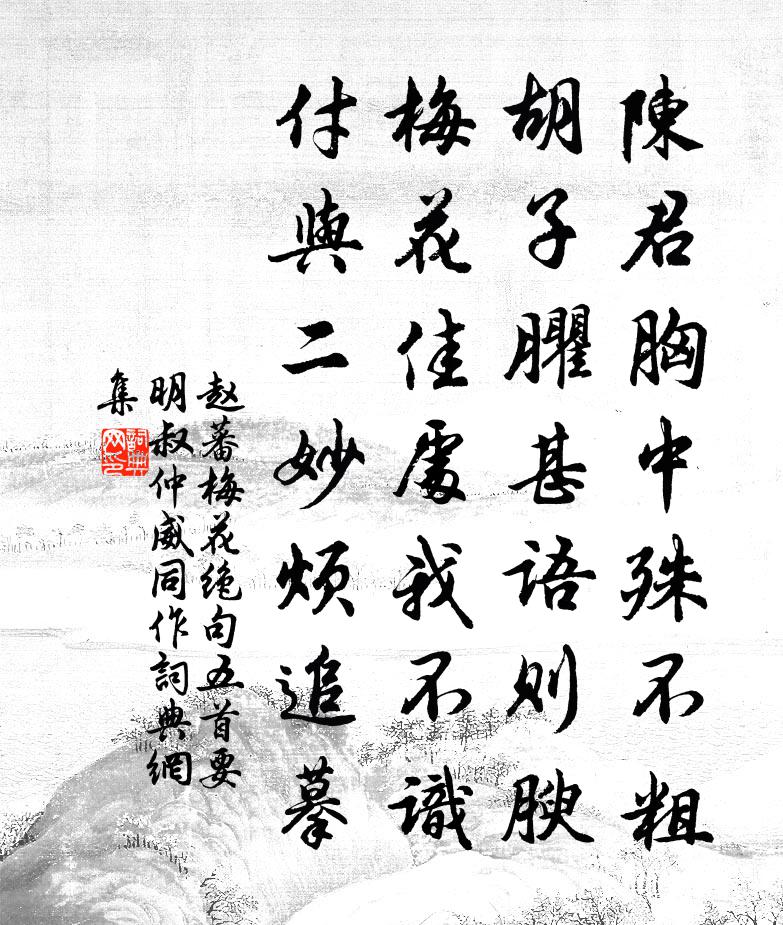 陳君胸中殊不粗
胡子臞甚語則腴
梅花佳處我不識
付與二妙煩追摹
赵蕃梅花绝句五首要
明叔仲威同作詞典網
集
詞典网印